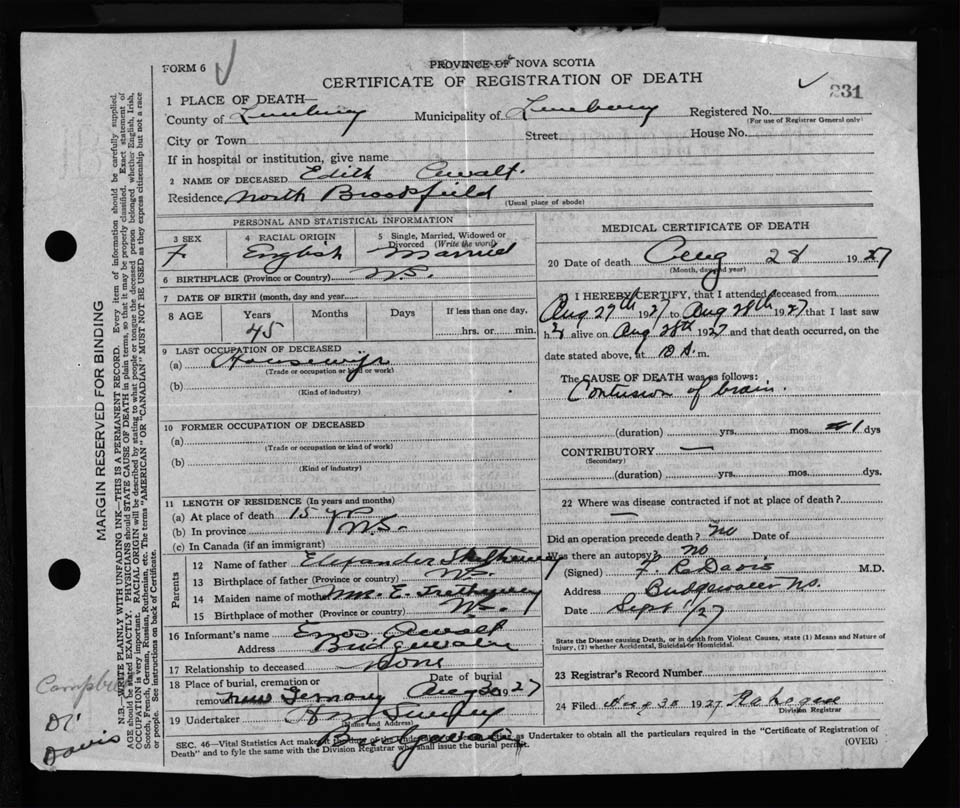 PROVINCE OF NOVA SCOTIA
FORM 6
CERTIFICATE OF REGISTRATION OF DEATH
231
1 PLACE OF DEATH—
County of Lunenburg Municipality of Lunenburg Registered No.
(For use of Registrar General only)
City or Town Street House No.
If in hospital or institution, give name
2 NAME OF DECEASED Edith Awalt.
Residence North Brookfield
(Usual place of abode)
PERSONAL AND STATISTICAL INFORMATION
3 SEX 4 RACIAL ORIGIN 5 Single, Married, Widowed or Divorced (Write the word)
F English Married
6 BIRTHPLACE (Province or Country) N.S.
7 DATE OF BIRTH (month, day and year)
8 AGE Years Months Days If less than one day,
45 hrs. or min.
9 LAST OCCUPATION OF DECEASED
(a) Housewife
(Trade or occupation or kind of work)
(b)
(Kind of industry)
10 FORMER OCCUPATION OF DECEASED
(a)
(Trade or occupation or kind of work)
(b)
(Kind of industry)
11 LENGTH OF RESIDENCE (In years and months)
(a) At place of death 15 yr
(b) In province N.S.
(c) In Canada (if an immigrant)
Parents
12 Name of father
13 Birthplace of father (Province or country) N.S.
14 Maiden name of mother Mrs. E. Trethewey
15 Birthplace of mother (Province or country) N.S.
16 Informant's name Enos Awalt
Address Bridgewater
17 Relationship to deceased None
18 Place of burial, cremation or removal Date of burial
New Germany Aug 30 1927
19 Undertaker
(Name and Address)
Bridgewater
MEDICAL CERTIFICATE OF DEATH
20 Date of death Aug 28 1927
(Month, day and year)
21 I HEREBY CERTIFY, that I attended deceased from
Aug 27th 1927 to Aug 28th 1927 that I last saw
h alive on Aug 28th 1927 and that death occurred, on the
date stated above, at m.
The CAUSE OF DEATH was as follows:
Contusion of brain.
(duration) yrs. mos. 1 dys
CONTRIBUTORY —
(Secondary)
(duration) yrs. mos. dys.
22 Where was disease contracted if not at place of death?
—
Did an operation precede death? No Date of
Was there an autopsy? no
(Signed) F R Davis M.D.
Address Bridgewater N.S.
Date Sept 1/27
State the Disease causing Death, or in death from Violent Causes, state (1) Means and Nature of Injury, (2) whether Accidental, Suicidal or Homicidal.
23 Registrar's Record Number
24 Filed Aug 30 1927
Division Registrar
SEC. 46—Vital Statistics Act makes as Undertaker to obtain all the particulars required in the "Certificate of Registration of
Death" and to fyle the same with the Division Registrar who shall issue the burial permit. (OVER)
MARGIN RESERVED FOR BINDING
N.B. WRITE PLAINLY WITH UNFADING INK—THIS IS A PERMANENT RECORD. Every item of information should be carefully supplied.
AGE should be stated EXACTLY. PHYSICIANS should STATE CAUSE OF DEATH in plain terms, so that it may be properly classified. Exact statement of
OCCUPATION is very important. RACIAL ORIGIN will be described by stating to what people or tongue the deceased person belonged whether English, Irish,
Scotch, French, German, Russian, Ruthenian, etc. The terms "AMERICAN" OR "CANADIAN" MUST NOT BE USED as they express citizenship but not a race
or people. See instructions on back of Certificate.
Dr
Davis